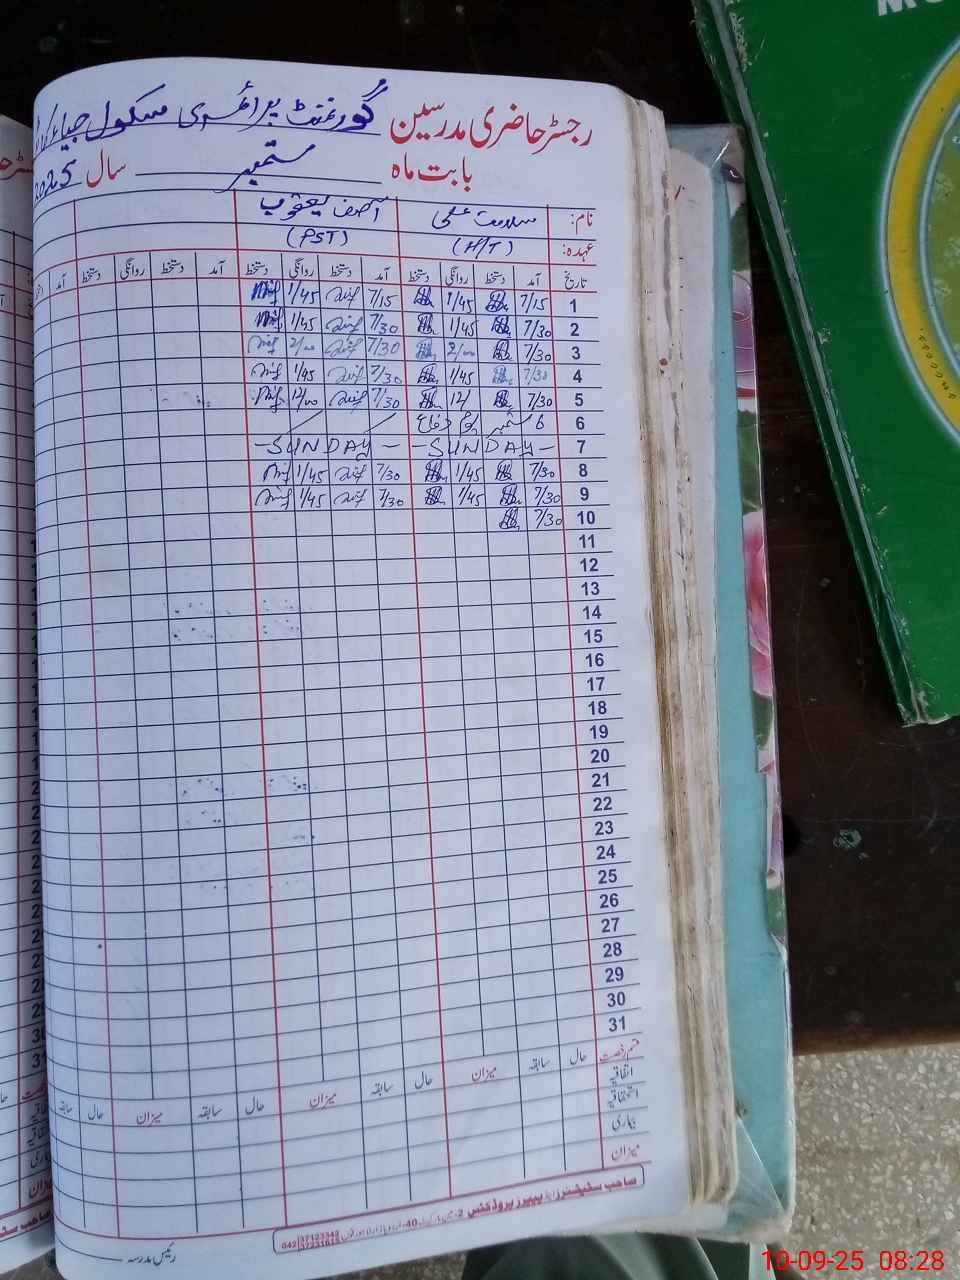 رجسٹر حاضری مدرسین گورنمنٹ پرائمری سکول
بابت ماہ ستمبر سال 2025
نام: سلامت علی آصف یعقوب
عہدہ: (H/T) (PST)
تاریخ آمد دستخط روانگی دستخط آمد دستخط روانگی دستخط آمد دستخط روانگی دستخط آمد
1 7/15 1/45 7/15 1/45
2 7/30 1/45 7/30 1/45
3 7/30 2/00 7/30 2/00
4 7/30 1/45 7/30 1/45
5 7/30 12/ 7/30 12/00
6 6 ستمبر یوم دفاع
7 - SUNDAY - - SUNDAY -
8 7/30 1/45 7/30 1/45
9 7/30 1/45 7/30 1/45
10 7/30
11
12
13
14
15
16
17
18
19
20
21
22
23
24
25
26
27
28
29
30
31
قسم رخصت حال سابقہ میزان حال سابقہ میزان حال سابقہ میزان حال سابقہ
اتفاقیہ
استحقاقیہ
بیماری
میزان
صاحب سٹیشنرز اینڈ پیپرز پروڈکٹس
042 37123342
37231615
رئیس مدرسہ
10-09-25 08:28